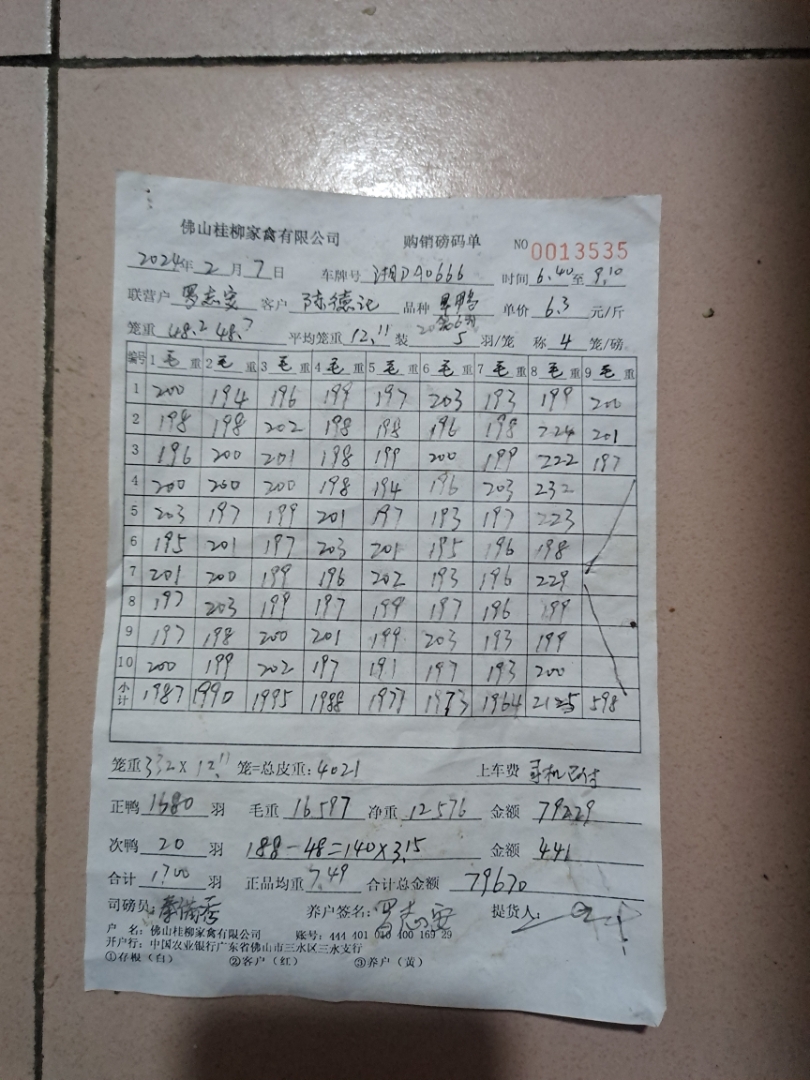 佛山桂柳家禽有限公司 购销磅码单 NO 0013535
2024年 2 月 7 日 车牌号 湘D40666 时间 6.40 至 9.10
联营户 罗志安 客户 陈德记 品种 单价 6.3 元/斤
笼重 48.2 48.7 平均笼重 12.11 装 5 羽/笼 称 4 笼/磅
编号 1 毛 重 2 毛 重 3 毛 重 4 毛 重 5 毛 重 6 毛 重 7 毛 重 8 毛 重 9 毛 重
1 200 194 196 199 197 203 193 199 200
2 198 198 202 198 198 196 198 224 201
3 196 200 201 198 199 200 199 222 197
4 200 200 200 198 194 196 203 232
5 203 197 199 201 197 193 197 223
6 195 201 197 203 201 195 196 198
7 201 200 199 196 202 193 196 229
8 197 203 199 197 199 197 196 199
9 197 198 200 201 199 203 193 199
10 200 199 202 197 191 197 193 200
小计 1987 1990 1995 1988 1977 1973 1964 2125 598
笼重 332 X 12.11 笼=总皮重: 4021 上车费 司机已付
正鸭 1680 羽 毛重 16597 净重 12576 金额 79229
次鸭 20 羽 188-48=140×3.15 金额 441
合计 1700 羽 正品均重 7.49 合计总金额 79670
司磅员: 养户签名: 罗志安 提货人:
户 名: 佛山桂柳家禽有限公司 账号: 444 401 040 400 169 29
开户行: 中国农业银行广东省佛山市三水区三水支行
①存根（白） ②客户（红） ③养户（黄）